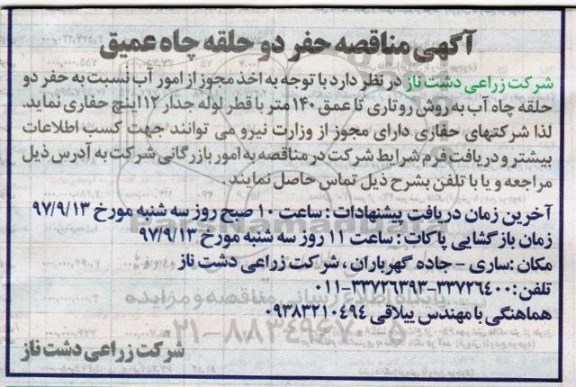 آگهی مناقصه حفر دو حلقه چاه عمیق
شرکت زراعی دشت ناز در نظر دارد با توجه به اخذ مجوز از امور آب نسبت به حفر دو
حلقه چاه آب به روش روتاری تا عمق ۱۴۰ متر با قطر لوله جدار ۱۱۲ینچ حفاری نماید.
لذا شرکتهای حفاری دارای مجوز از وزارت نیرو می توانند جهت کسب اطلاعات
بیشتر و دریافت فرم شرایط شرکت در مناقصه به امور بازرگانی شرکت به آدرس ذیل
مراجعه و یا با تلفن بشرح ذیل تماس حاصل نمایند.
آخرین زمان دریافت پیشنهادات : ساعت ۱۰ صبح روز سه شنبه مورخ ۹۷/۹/۱۳
زمان بازگشایی پاکات : ساعت ۱۱ روز سه شنبه مورخ ۹۷/۹/۱۳
مکان :ساری - جاده گهرباران ، شرکت زراعی دشت ناز
تلفن: ۳۳۷۲۶۴۰۰-۳۳۷۲۶۳۹۳-۰۱۱
هماهنگی با مهندس ییلاقی ۰۹۳۸۳۲۱۰۴۹۴
پایگاه اطلاع رسانی مناقصه و مزایده
شرکت زراعی دشت ناز